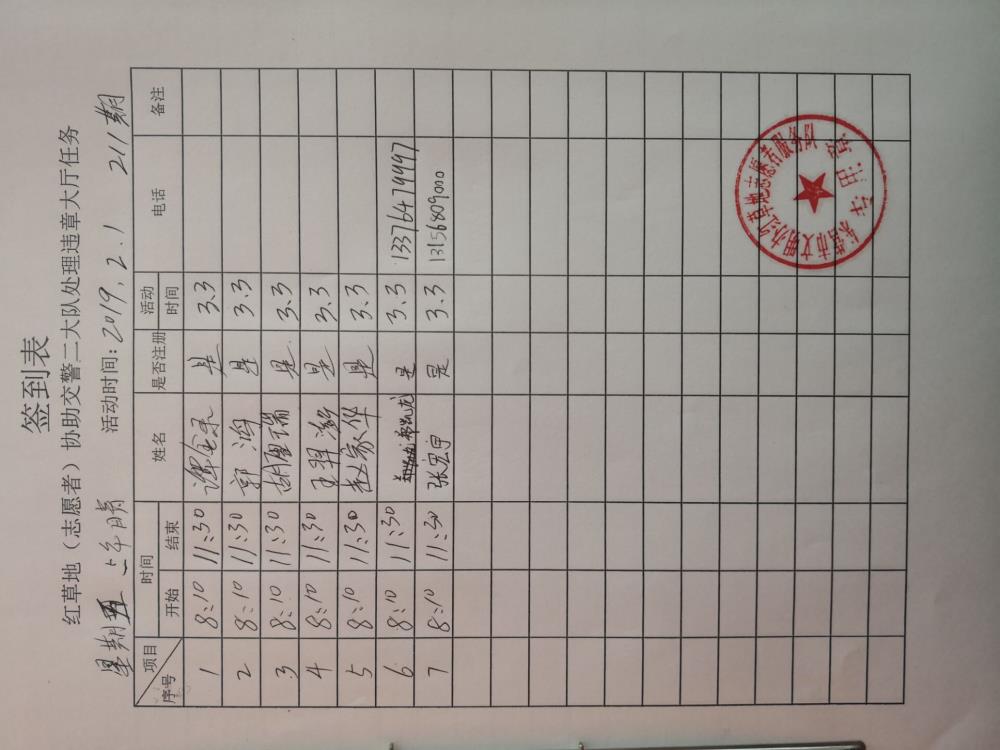 签到表
红草地（志愿者）协助交警二大队处理违章大厅任务
星期五 上午 晴 活动时间：2019，2.1 211期
项目 序号 时间 姓名 是否注册 活动时间 电话 备注
开始 结束
1 8:10 11:30 是 3.3
2 8:10 11:30 郭鸿 是 3.3
3 8:10 11:30 胡国瑞 是 3.3
4 8:10 11:30 是 3.3
5 8:10 11:30 赵家华 是 3.3
6 8:10 11:30 是 3.3 13376479997
7 8:10 11:30 张宏宇 是 3.3 13156809000
东营市文明办红草地志愿者服务队